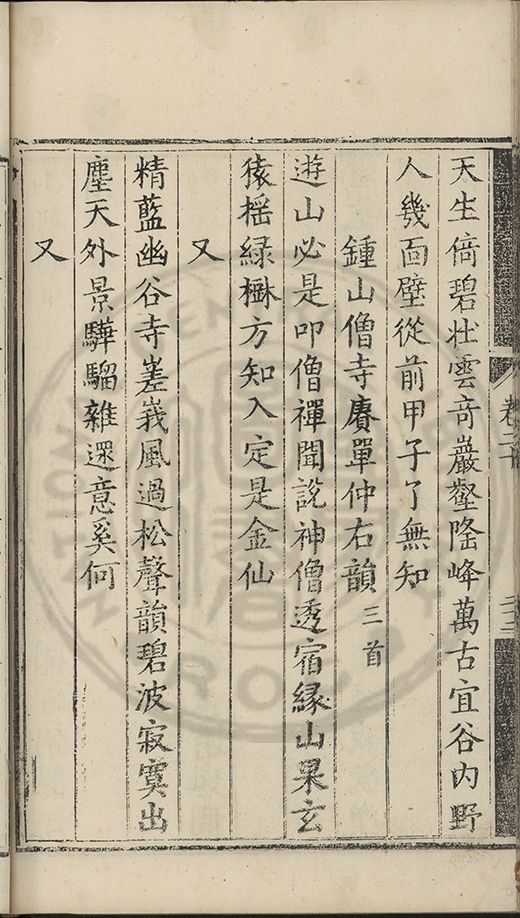 天生倚碧壯雲竒巖壑隆峰萬古宜谷内野
人幾靣壁從前甲子了無知
鍾山僧寺賡單仲右韻三首
遊山必是叩僧禪聞說神僧透宿縁山果玄
猿榣緑楙方知入定是金仙
又
精藍幽谷寺嵳峩風過松聲韻碧波寂寞出
塵天外景驊騮雜還意奚何
又
卷二十